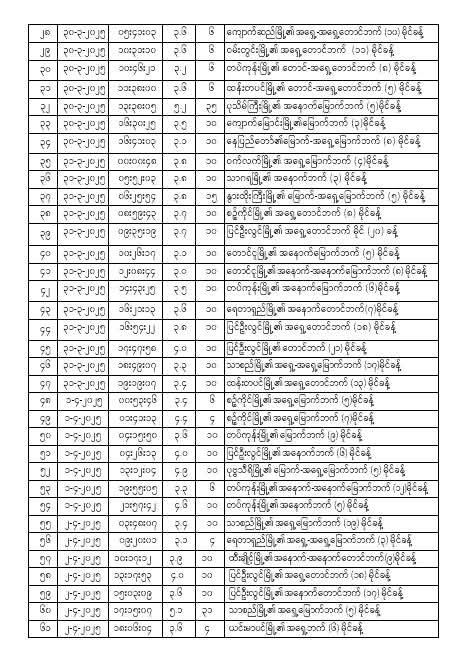 ၂၈ ၃၀-၃-၂၀၂၅ ၀၅း၄၁း၀၃ ၃.၆ ၆ ကျောက်ဆည်မြို့၏ အရှေ့-အရှေ့တောင်ဘက် (၁၀) မိုင်ခန့်
၂၉ ၃၀-၃-၂၀၂၅ ၁၀း၃၁း၁၀ ၃.၆ ၆ ဝမ်းတွင်းမြို့၏ အရှေ့တောင်ဘက် (၁၁) မိုင်ခန့်
၃၀ ၃၀-၃-၂၀၂၅ ၁၀း၄၆း၂၁ ၃.၂ ၆ တပ်ကုန်းမြို့၏ တောင်-အရှေ့တောင်ဘက် (၈) မိုင်ခန့်
၃၁ ၃၀-၃-၂၀၂၅ ၁၁း၃၈း၀၀ ၃.၆ ၆ ထန်းတပင်မြို့၏ တောင်-အရှေ့တောင်ဘက် (၅) မိုင်ခန့်
၃၂ ၃၀-၃-၂၀၂၅ ၁၃း၃၈း၀၅ ၅.၂ ၃၅ ပုသိမ်ကြီးမြို့၏ အနောက်မြောက်ဘက် (၅)မိုင်ခန့်
၃၃ ၃၀-၃-၂၀၂၅ ၁၆း၃၀း၂၅ ၃.၅ ၁၀ ကျောက်မြောင်းမြို့၏မြောက်ဘက် (၃)မိုင်ခန့်
၃၄ ၃၀-၃-၂၀၂၅ ၁၆း၄၁း၀၃ ၃.၁ ၁၀ နေပြည်တော်၏မြောက်-အရှေ့မြောက်ဘက် (၈) မိုင်ခန့်
၃၅ ၃၁-၃-၂၀၂၅ ၀၀း၀၀း၄၈ ၃.၈ ၁၀ ဝက်လက်မြို့၏ အရှေ့မြောက်ဘက် (၄)မိုင်ခန့်
၃၆ ၃၁-၃-၂၀၂၅ ၀၅း၅၂း၀၃ ၃.၈ ၁၀ သာဂရမြို့၏ အနောက်ဘက် (၃) မိုင်ခန့်
၃၇ ၃၁-၃-၂၀၂၅ ၀၆း၂၅း၅၄ ၃.၈ ၁၅ နွားထိုးကြီးမြို့၏ မြောက်-အရှေ့မြောက်ဘက် (၅) မိုင်ခန့်
၃၈ ၃၁-၃-၂၀၂၅ ၀၈း၅၉း၄၃ ၃.၇ ၁၀ စဉ့်ကိုင်မြို့၏ အရှေ့တောင်ဘက် (၈) မိုင်ခန့်
၃၉ ၃၁-၃-၂၀၂၅ ၀၉း၃၅း၁၉ ၃.၇ ၁၀ ပြင်ဦးလွင်မြို့၏ အရှေ့တောင်ဘက် မိုင် (၂၀) ခန့်
၄၀ ၃၁-၃-၂၀၂၅ ၁၀း၂၆း၁၇ ၃.၁ ၁၀ တောင်ငူမြို့၏ အနောက်မြောက်ဘက် (၅) မိုင်ခန့်
၄၁ ၃၁-၃-၂၀၂၅ ၁၂း၀၈း၄၄ ၃.၀ ၁၀ တောင်ငူမြို့၏အနောက်-အနောက်မြောက်ဘက် (၈)မိုင်ခန့်
၄၂ ၃၁-၃-၂၀၂၅ ၁၄း၄၃း၂၅ ၃.၅ ၁၀ တပ်ကုန်းမြို့၏ အနောက်မြောက်ဘက် (၆)မိုင်ခန့်
၄၃ ၃၁-၃-၂၀၂၅ ၁၆း၂၁း၁၃ ၃.၆ ၁၀ ရေတာရှည်မြို့၏ အနောက်တောင်ဘက်(၇)မိုင်ခန့်
၄၄ ၃၁-၃-၂၀၂၅ ၁၆း၅၄း၂၂ ၃.၈ ၁၀ ပြင်ဦးလွင်မြို့၏ အရှေ့တောင်ဘက် (၁၈) မိုင်ခန့်
၄၅ ၃၁-၃-၂၀၂၅ ၁၇း၄၇း၅၈ ၄.၀ ၁၀ ပြင်ဦးလွင်မြို့၏ တောင်ဘက် (၂၁) မိုင်ခန့်
၄၆ ၃၁-၃-၂၀၂၅ ၁၈း၄၉း၀၇ ၃.၃ ၁၀ သာစည်မြို့၏ အရှေ့-အရှေ့မြောက်ဘက် (၁၇)မိုင်ခန့်
၄၇ ၃၁-၃-၂၀၂၅ ၁၉း၁၉း၀၇ ၃.၄ ၁၀ ထန်းတပင်မြို့၏ အရှေ့တောင်ဘက် (၁၃) မိုင်ခန့်
၄၈ ၁-၄-၂၀၂၅ ၀၀း၅၃း၄၆ ၃.၄ ၆ စဉ့်ကိုင်မြို့၏ အရှေ့မြောက်ဘက် (၅)မိုင်ခန့်
၄၉ ၁-၄-၂၀၂၅ ၀၁း၄၁း၁၃ ၄.၄ ၄ စဉ့်ကိုင်မြို့၏ အရှေ့မြောက်ဘက် (၇)မိုင်ခန့်
၅၀ ၁-၄-၂၀၂၅ ၀၄း၁၅း၅၀ ၃.၆ ၁၀ တပ်ကုန်းမြို့၏ မြောက်ဘက် (၉) မိုင်ခန့်
၅၁ ၁-၄-၂၀၂၅ ၀၄း၂၆း၁၃ ၄.၀ ၁၀ ပြင်ဦးလွင်မြို့၏ အနောက်ဘက် (၆) မိုင်ခန့်
၅၂ ၁-၄-၂၀၂၅ ၁၃း၁၂း၀၄ ၄.၉ ၁၀ ပုဗ္ဗသီရိမြို့၏ မြောက်-အရှေ့မြောက်ဘက် (၅) မိုင်ခန့်
၅၃ ၁-၄-၂၀၂၅ ၁၉း၅၅း၀၅ ၃.၃ ၆ တပ်ကုန်းမြို့၏အနောက်-အနောက်မြောက်ဘက် (၁၂)မိုင်ခန့်
၅၄ ၁-၄-၂၀၂၅ ၂၁း၅၇း၄၂ ၄.၆ ၁၀ တပ်ကုန်းမြို့၏အနောက်ဘက် (၅) မိုင်ခန့်
၅၅ ၂-၄-၂၀၂၅ ၀၃း၄၈း၀၇ ၃.၄ ၁၀ သာစည်မြို့၏ အရှေ့မြောက်ဘက် (၁၉) မိုင်ခန့်
၅၆ ၂-၄-၂၀၂၅ ၀၉း၂၀း၀၁ ၃.၁ ၄ ရေတာရှည်မြို့၏ အရှေ့-အရှေ့မြောက်ဘက် (၃)မိုင်ခန့်
၅၇ ၂-၄-၂၀၂၅ ၁၀း၁၇း၁၂ ၃.၉ ၁၀ ထီးချိုင့်မြို့၏အနောက်-အနောက်တောင်ဘက်(၉)မိုင်ခန့်
၅၈ ၂-၄-၂၀၂၅ ၁၃း၁၇း၅၃ ၄.၀ ၁၀ ပြင်ဦးလွင်မြို့၏ အရှေ့တောင်ဘက် (၁၈) မိုင်ခန့်
၅၉ ၂-၄-၂၀၂၅ ၁၅း၀၃း၀၉ ၃.၆ ၁၀ ပြင်ဦးလွင်မြို့၏အရှေ့တောင်ဘက် (၁၇) မိုင်ခန့်
၆၀ ၂-၄-၂၀၂၅ ၁၇း၁၅း၀၇ ၅.၁ ၃၁ သာစည်မြို့၏ အရှေ့မြောက်ဘက် (၅) မိုင်ခန့်
၆၁ ၂-၄-၂၀၂၅ ၁၈း၀၆း၀၄ ၃.၆ ၄ ယင်းမာပင်မြို့၏အရှေ့ဘက် (၆) မိုင်ခန့်